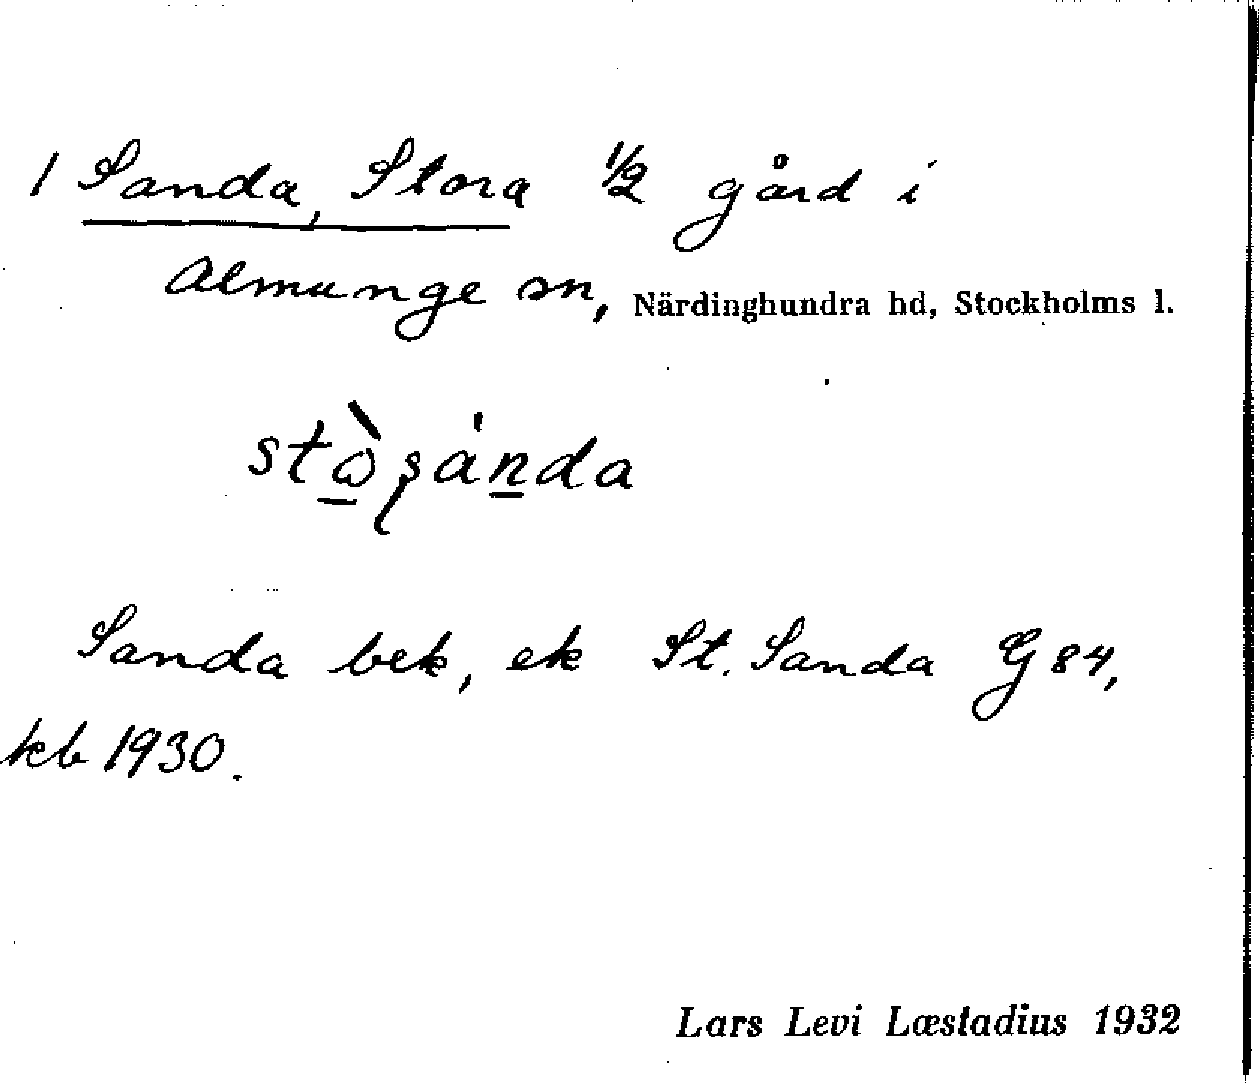 1 Sanda, Stora 1/2 gård i
Almunge sn, Närdinghundra hd, Stockholms l.
Sanda bek, ek St. Sanda G 84,
kb 1930.
Lars Levi Læstadius 1932